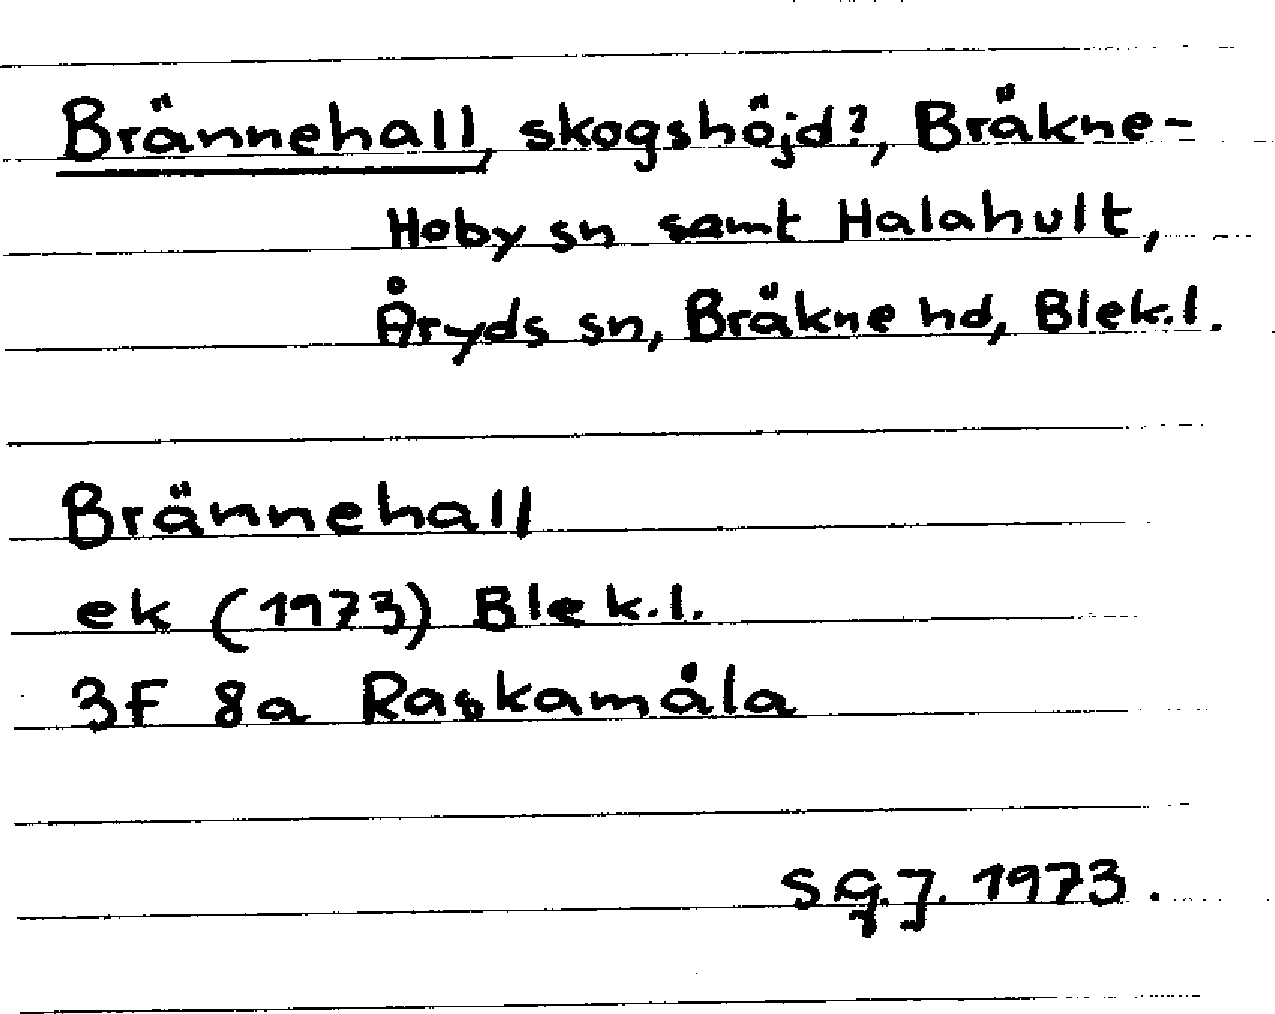 Brännehall, skogshöjd?, Bräkne-
Hoby sn samt Halahult,
Åryds sn, Bräkne hd, Blek.l.
Brännehall
ek (1973) Blek.l.
3F 8a Raskamåla
S.G.J. 1973.